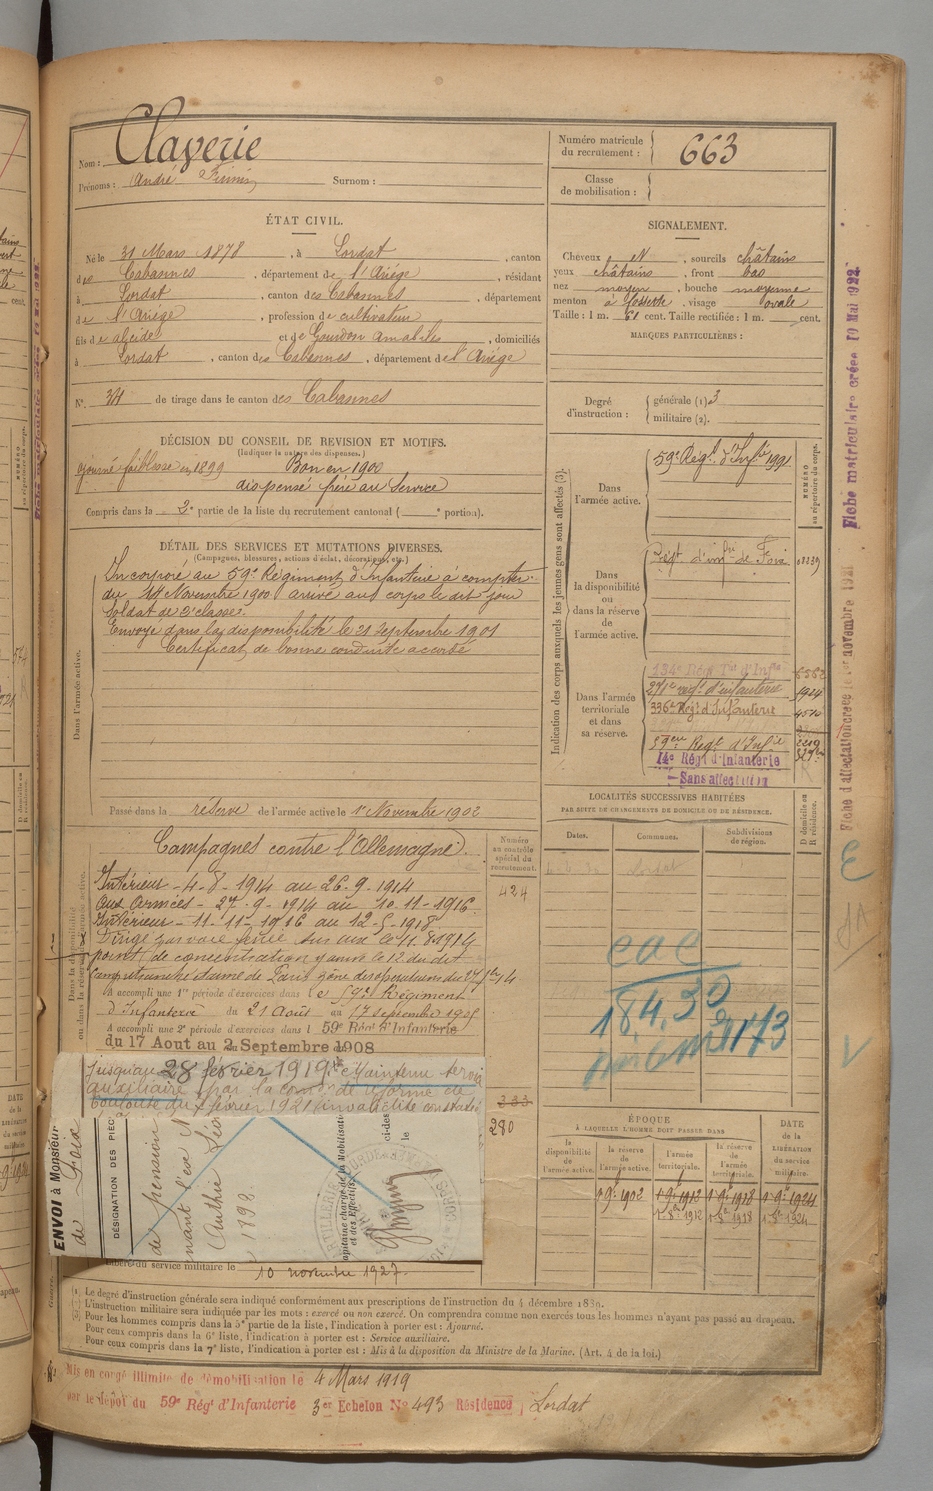 Nom : Claverie
Prénoms : André Surnom :
Numéro matricule du recrutement : 663
Classe de mobilisation :
ÉTAT CIVIL.
Né le 31 Mars 1878, à Lordat, canton
des Cabannes, département de l'Ariége, résidant
à Lordat, canton des Cabannes, département
de l'Ariége, profession de cultivateur
fils de et de Gourdon , domiciliés
à Lordat, canton des Cabannes, département de l'Ariége
N° 34 de tirage dans le canton des Cabannes
SIGNALEMENT.
Cheveux N, sourcils châtains
yeux châtains, front bas
nez moyen, bouche moyenne
menton à fossette, visage ovale
Taille : 1 m. 61 cent. Taille rectifiée : 1 m. cent.
MARQUES PARTICULIÈRES :
Degré d'instruction : générale (1) 3
militaire (2).
DÉCISION DU CONSEIL DE REVISION ET MOTIFS.
(Indiquer la nature des dispenses.)
ajourné faiblesse en 1899 Bon en 1900
dispensé frère au service
Compris dans la 2e partie de la liste du recrutement cantonal ( e portion).
DÉTAIL DES SERVICES ET MUTATIONS DIVERSES.
(Campagnes, blessures, actions d'éclat, décorations, etc.)
Dans l'armée active.
Incorporé au 59e Régiment d'Infanterie à compter
du Novembre 1900 arrivé au corps le dit jour
Soldat de 2e classe.
Envoyé dans la disponibilité le 21 Septembre 1901
Certificat de bonne conduite accordé
Passé dans la réserve de l'armée active le 1er Novembre 1902
Indication des corps auxquels les jeunes gens sont affectés (3).
NUMÉRO au répertoire du corps.
Dans l'armée active.
59e Régt d'Infie
Dans la disponibilité ou dans la réserve de l'armée active.
Régt d'infie de Foix
Dans l'armée territoriale et dans sa réserve.
134e Régt Tal d'Infie
271e régt d'infanterie
336e Régt d'Infanterie
59eme Régt d'Infie
14e Régt d'Infanterie
Sans affectation
LOCALITÉS SUCCESSIVES HABITÉES
PAR SUITE DE CHANGEMENTS DE DOMICILE OU DE RÉSIDENCE.
Dates. Communes. Subdivisions de région. D domicile ou R résidence.
Lordat
Campagnes contre l'Allemagne
Numéro au contrôle spécial du recrutement.
424
Intérieur - 4-8-1914 au 26.9.1914
Aux armées - 27.9-1914 au 10.11-1916
Intérieur - 11-11-1916 au 12-5-1918
Dirigé par voie ferrée sur le 11.8.1914
point de concentration le 12 du dit
A accompli une 1re période d'exercices dans le 59e Régiment
d'Infanterie du 21 Août au 17 septembre 1905
A accompli une 2e période d'exercices dans le 59e Régt d'Infanterie
du 17 Aout au 2 Septembre 1908
jusqu'au 28 février 1919. Maintenu service
auxiliaire par la comon de réforme de
Toulouse du février 1921 invalidité constatée
cac
184.30
333
280
ENVOI à Monsieur
de Foix
DÉSIGNATION DES PIÈC
de pension
1898
apitaine chargé de la Mobilisation
et des Effectifs,
ci-des
le
ÉPOQUE
À LAQUELLE L'HOMME DOIT PASSER DANS
la disponibilité de l'armée active.
la réserve de l'armée active.
l'armée territoriale.
la réserve de l'armée territoriale.
DATE de la LIBÉRATION du service militaire.
1 9bre 1902 1 9bre 1912 1 9bre 1918 1 9bre 1924
1-8bre 1912 1-8bre 1918 1-8bre 1924
Libéré du service militaire le 10 novembre 1927.
(1) Le degré d'instruction générale sera indiqué conformément aux prescriptions de l'instruction du 4 décembre 1889.
(2) L'instruction militaire sera indiquée par les mots : exercé ou non exercé. On comprendra comme non exercés tous les hommes n'ayant pas passé au drapeau.
(3) Pour les hommes compris dans la 5e partie de la liste, l'indication à porter est : Ajourné.
Pour ceux compris dans la 6e liste, l'indication à porter est : Service auxiliaire.
Pour ceux compris dans la 7e liste, l'indication à porter est : Mis à la disposition du Ministre de la Marine. (Art. 4 de la loi.)
Mis en congé illimité de démobilisation le 4 Mars 1919
par le dépôt du 59e Régt d'Infanterie 3er Echelon N° 493 Résidence, Lordat
Fiche matriculaire créée 19 Mai 1922.
Fiche d'affectation créée le 1er novembre 1921